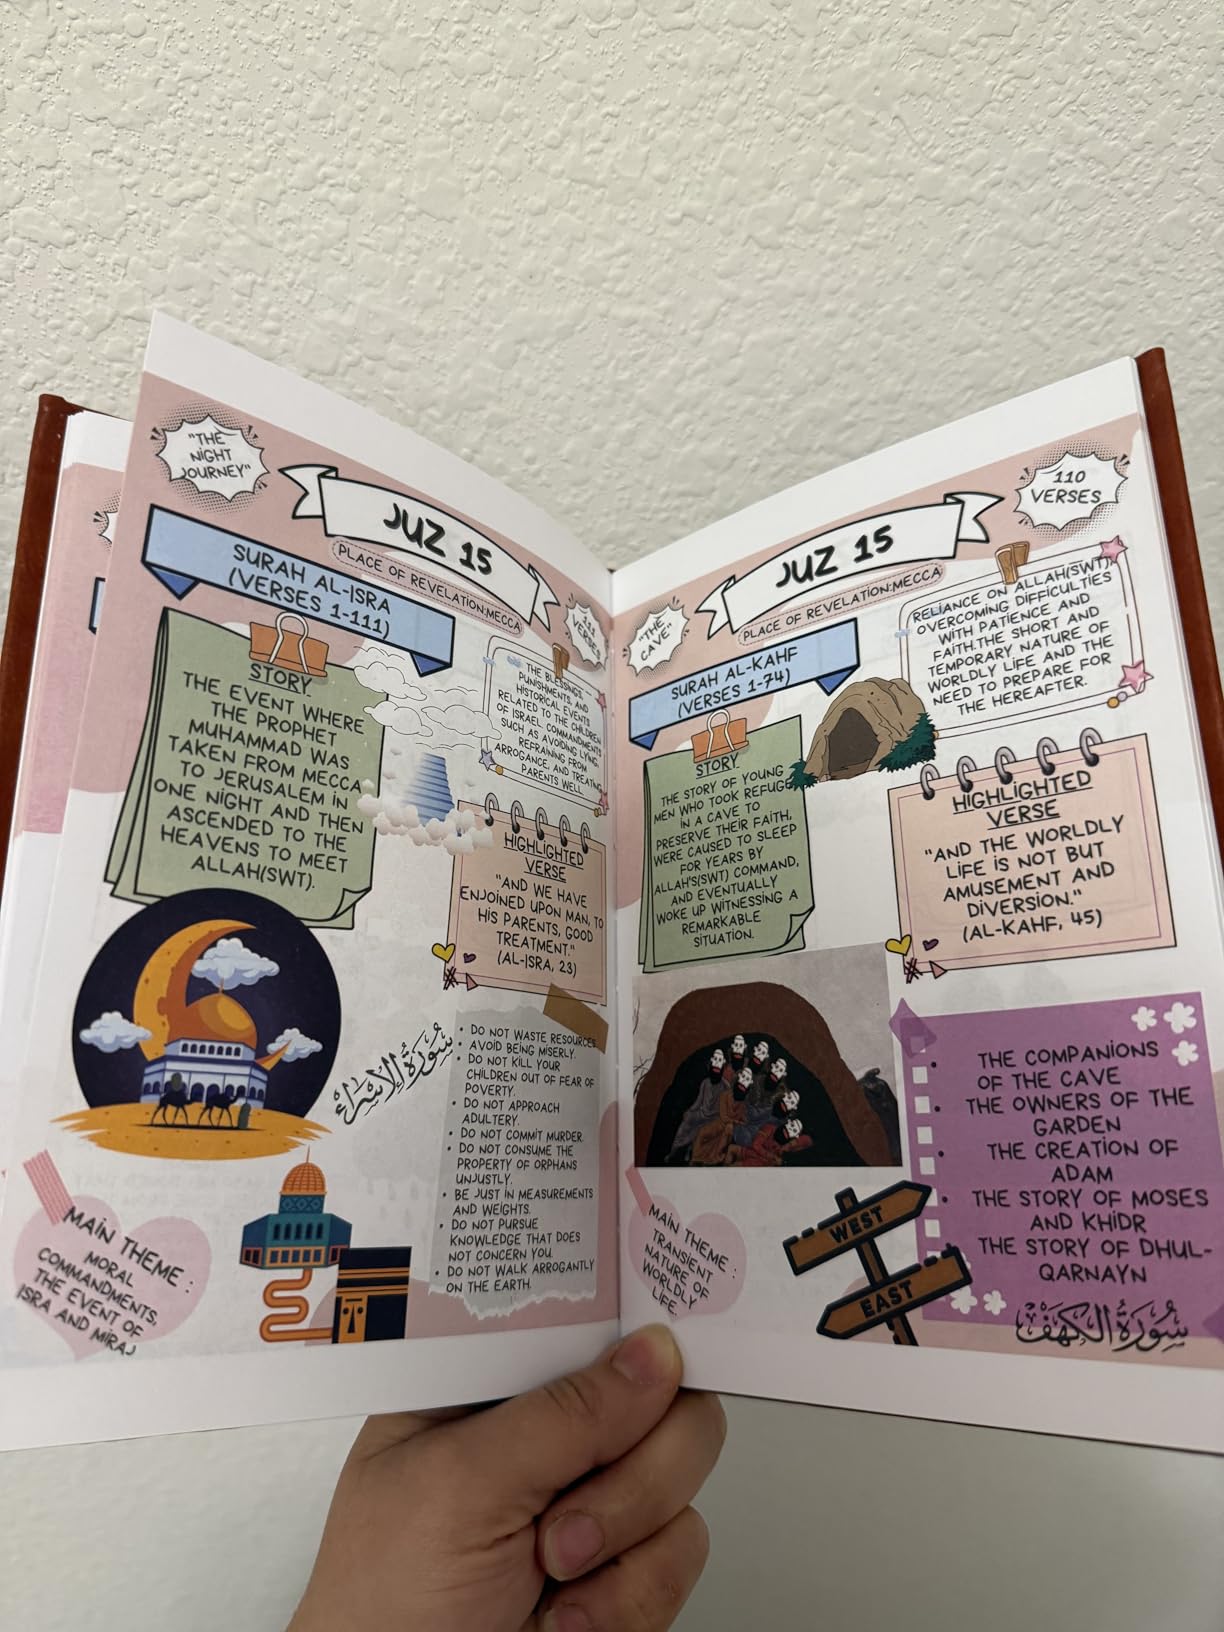 "THE
NIGHT
JOURNEY"
JUZ 15
PLACE OF REVELATION:MECCA
SURAH AL-ISRA
(VERSES 1-111)
111
VERSES
STORY
THE EVENT WHERE
THE PROPHET
MUHAMMAD WAS
TAKEN FROM MECCA
TO JERUSALEM IN
ONE NIGHT AND THEN
ASCENDED TO THE
HEAVENS TO MEET
ALLAH(SWT).
THE BLESSINGS,
PUNISHMENTS, AND
HISTORICAL EVENTS
RELATED TO THE CHILDREN
OF ISRAEL COMMANDMENTS
SUCH AS AVOIDING LYING,
REFRAINING FROM
ARROGANCE, AND TREATING
PARENTS WELL.
HIGHLIGHTED
VERSE
"AND WE HAVE
ENJOINED UPON MAN, TO
HIS PARENTS, GOOD
TREATMENT."
(AL-ISRA, 23)
سُورَةُ الإِسْرَاءِ
• DO NOT WASTE RESOURCES.
• AVOID BEING MISERLY.
• DO NOT KILL YOUR
CHILDREN OUT OF FEAR OF
POVERTY.
• DO NOT APPROACH
ADULTERY.
• DO NOT COMMIT MURDER.
• DO NOT CONSUME THE
PROPERTY OF ORPHANS
UNJUSTLY.
• BE JUST IN MEASUREMENTS
AND WEIGHTS.
• DO NOT PURSUE
KNOWLEDGE THAT DOES
NOT CONCERN YOU.
• DO NOT WALK ARROGANTLY
ON THE EARTH.
MAIN THEME :
MORAL
COMMANDMENTS,
THE EVENT OF
ISRA AND MIRAJ
110
VERSES
JUZ 15
PLACE OF REVELATION:MECCA
"THE
CAVE"
SURAH AL-KAHF
(VERSES 1-74)
RELIANCE ON ALLAH(SWT),
OVERCOMING DIFFICULTIES
WITH PATIENCE AND
FAITH.THE SHORT AND
TEMPORARY NATURE OF
WORLDLY LIFE AND THE
NEED TO PREPARE FOR
THE HEREAFTER.
STORY
THE STORY OF YOUNG
MEN WHO TOOK REFUGE
IN A CAVE TO
PRESERVE THEIR FAITH,
WERE CAUSED TO SLEEP
FOR YEARS BY
ALLAH'S(SWT) COMMAND,
AND EVENTUALLY
WOKE UP WITNESSING A
REMARKABLE
SITUATION.
HIGHLIGHTED
VERSE
"AND THE WORLDLY
LIFE IS NOT BUT
AMUSEMENT AND
DIVERSION."
(AL-KAHF, 45)
• THE COMPANIONS
OF THE CAVE
• THE OWNERS OF THE
GARDEN
• THE CREATION OF
ADAM
• THE STORY OF MOSES
AND KHIDR
THE STORY OF DHUL-
QARNAYN
سُورَةُ الكَهْفِ
MAIN THEME :
TRANSIENT
NATURE OF
WORLDLY
LIFE.
WEST
EAST